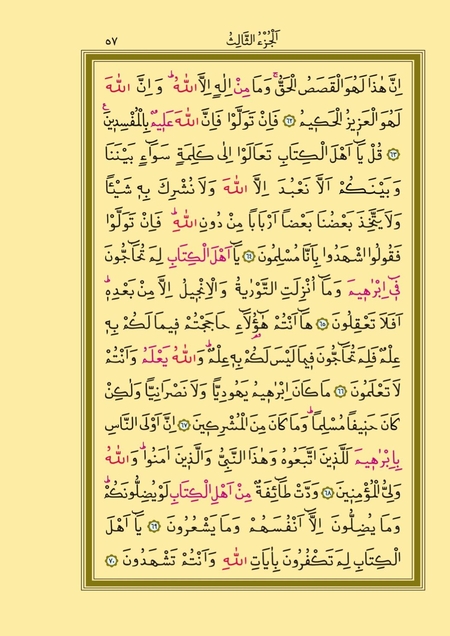 اَلْجُزْءُ الثَّالِثُ
٥٧
اِنَّ هٰذَا لَهُوَ الْقَصَصُ الْحَقُّۚ وَمَا مِنْ اِلٰهٍ اِلَّا اللّٰهُۜ وَاِنَّ اللّٰهَ
لَهُوَ الْعَزِيزُ الْحَكِيمُ ﴿٦٢﴾ فَاِنْ تَوَلَّوْا فَاِنَّ اللّٰهَ عَلِيمٌ بِالْمُفْسِدِينَ۟
﴿٦٣﴾ قُلْ يَٓا اَهْلَ الْكِتَابِ تَعَالَوْا اِلٰى كَلِمَةٍ سَوَٓاءٍ بَيْنَنَا
وَبَيْنَكُمْ اَلَّا نَعْبُدَ اِلَّا اللّٰهَ وَلَا نُشْرِكَ بِهٖ شَيْـًٔا
وَلَا يَتَّخِذَ بَعْضُنَا بَعْضًا اَرْبَابًا مِنْ دُونِ اللّٰهِۜ فَاِنْ تَوَلَّوْا
فَقُولُوا اشْهَدُوا بِاَنَّا مُسْلِمُونَ ﴿٦٤﴾ يَٓا اَهْلَ الْكِتَابِ لِمَ تُحَٓاجُّونَ
فٖٓي اِبْرٰهٖيمَ وَمَٓا اُنْزِلَتِ التَّوْرٰيةُ وَالْاِنْجٖيلُ اِلَّا مِنْ بَعْدِهٖۜ
اَفَلَا تَعْقِلُونَ ﴿٦٥﴾ هَٓا اَنْتُمْ هٰٓؤُ۬لَٓاءِ حَاجَجْتُمْ فٖيمَا لَكُمْ بِهٖ
عِلْمٌ فَلِمَ تُحَٓاجُّونَ فٖيمَا لَيْسَ لَكُمْ بِهٖ عِلْمٌۜ وَاللّٰهُ يَعْلَمُ وَاَنْتُمْ
لَا تَعْلَمُونَ ﴿٦٦﴾ مَا كَانَ اِبْرٰهٖيمُ يَهُودِيًّا وَلَا نَصْرَانِيًّا وَلٰكِنْ
كَانَ حَنٖيفًا مُسْلِمًاۜ وَمَا كَانَ مِنَ الْمُشْرِكٖينَ ﴿٦٧﴾ اِنَّ اَوْلَى النَّاسِ
بِاِبْرٰهٖيمَ لَلَّذٖينَ اتَّبَعُوهُ وَهٰذَا النَّبِيُّ وَالَّذٖينَ اٰمَنُواۜ وَاللّٰهُ
وَلِيُّ الْمُؤْمِنٖينَ ﴿٦٨﴾ وَدَّتْ طَٓائِفَةٌ مِنْ اَهْلِ الْكِتَابِ لَوْ يُضِلُّونَكُمْۜ
وَمَا يُضِلُّونَ اِلَّٓا اَنْفُسَهُمْ وَمَا يَشْعُرُونَ ﴿٦٩﴾ يَٓا اَهْلَ
الْكِتَابِ لِمَ تَكْفُرُونَ بِاٰيَاتِ اللّٰهِ وَاَنْتُمْ تَشْهَدُونَ ﴿٧٠﴾